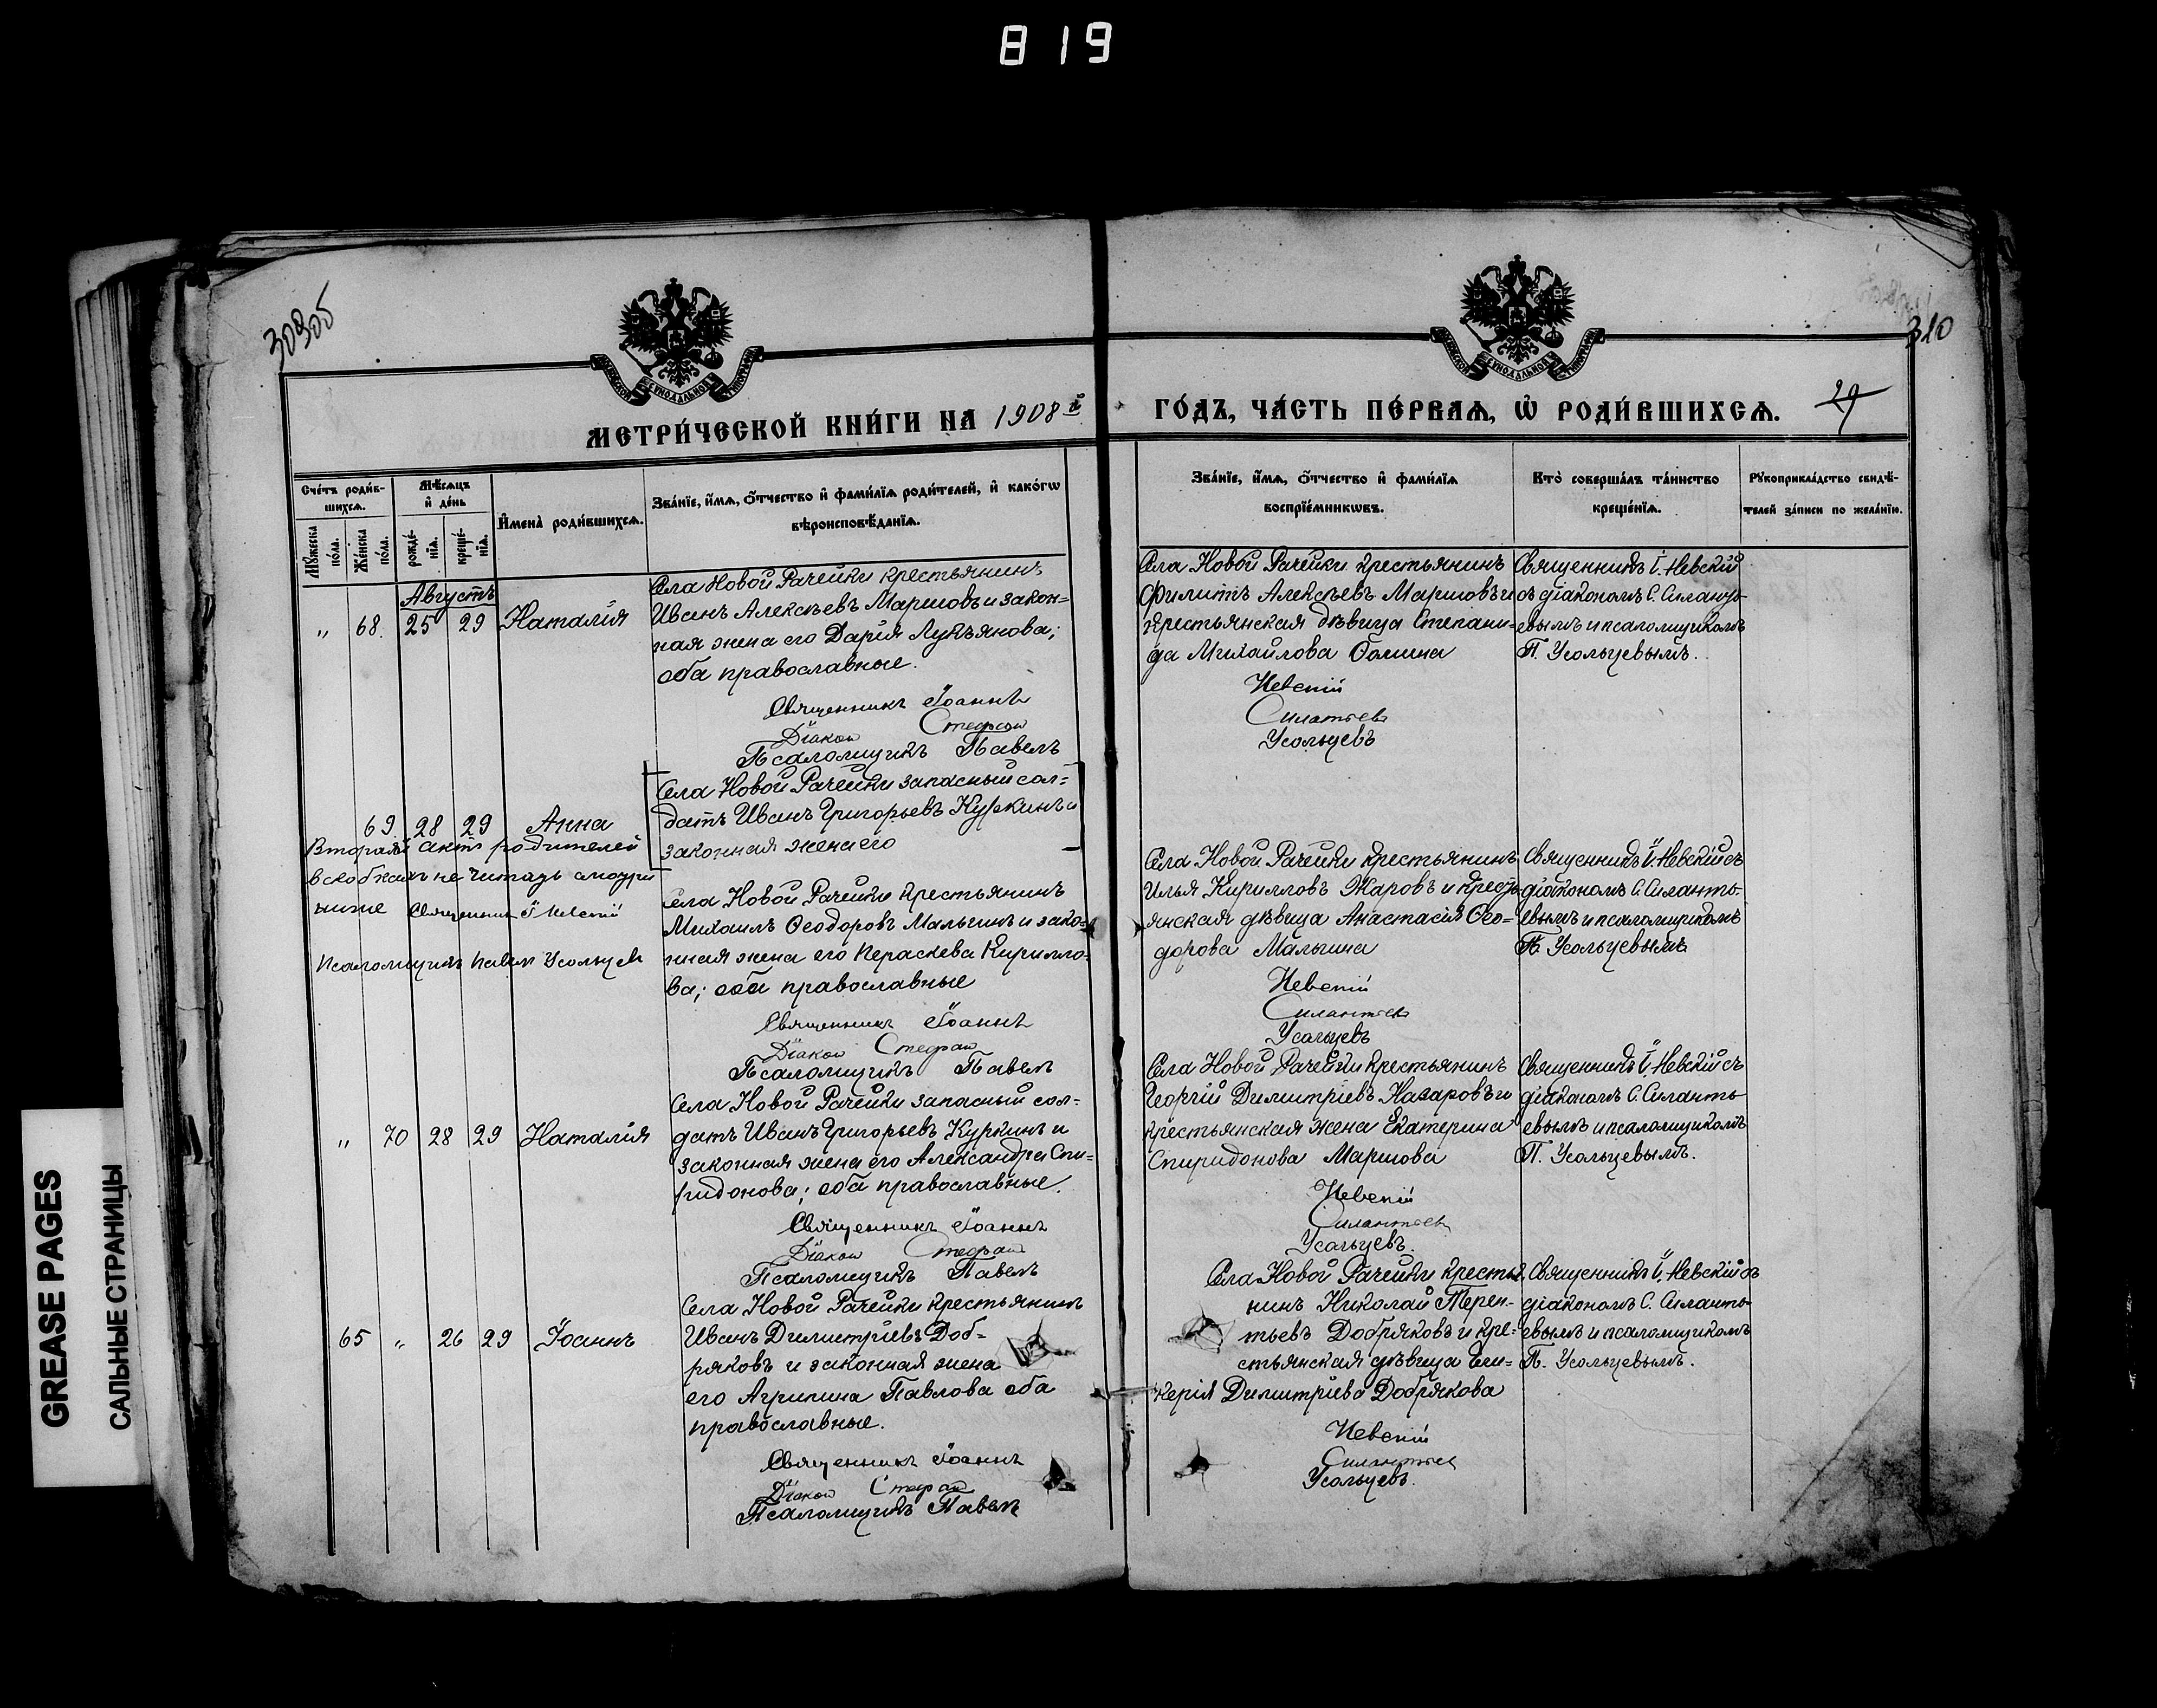 819
GREASE PAGES
САЛЬНЫЕ СТРАНИЦЫ
309об
310
МЕТРИ́ЧЕСКОЙ КНИ́ГИ НА 1908й
ГО́ДЪ, ЧА́СТЬ ПЕ́РВАѦ, Ѡ҆ РОДИ́ВШИХСѦ.
29
Сче́тъ роди́в-
шихсѧ.
Мꙋ́жеска
по́ла.
Же́нска
по́ла.
Мѣ́сѧцъ
и҆ де́нь
рожде́-
нїѧ.
креще́-
нїѧ.
И҆мена̀ роди́вшихсѧ.
Зва́нїе, и҆́мѧ, ѻ҆́тчество и҆ фами́лїѧ роди́телей, и҆ како́гѡ
вѣроисповѣ́данїѧ.
Зва́нїе, и҆́мѧ, ѻ҆́тчество и҆ фами́лїѧ
воспрїе́мникѡвъ.
Кто̀ соверша́лъ та́инство
креще́нїѧ.
Рꙋкоприкла́дство свидѣ́-
телей за́писи по жела́нїю.
Августъ
„ 68. 25 29 Наталія
Села Новой Рачейки крестьянинъ
Иванъ Алексѣевъ Маршовъ и закон=
ная жена его Дарія Лукъянова;
оба православные.
Священникъ Іоаннъ
Діакон Стефан
Псаломщикъ Павелъ
Села Новой Рачейки крестьянинъ
Филиппъ Алексѣевъ Маршовъ и
крестьянская дѣвица Степани-
да Михайлова Фомина
Невскій
Силантьевъ
Усольцевъ
Священникъ І. Невскій
съ діакономъ С. Силанть-
евымъ и псаломщикомъ
П. Усольцевымъ.
69. 28 29 Анна
Села Новой Рачейки запасный сол=
датъ Иванъ Григорьевъ Куркинъ и
законная жена его
Вторый актъ родителей
в скобкахъ не читать смотри
ниже Священник І Невскій
Псаломщикъ Павелъ Усольцевъ
Села Новой Рачейки крестьянинъ
Михаилъ Ѳеодоровъ Малыгинъ и зако=
нная жена его Параскева Кирилло-
ва; оба православные
Священникъ Іоаннъ
Діакон Стефан
Псаломщикъ Павелъ
Села Новой Рачейки крестьянинъ
Илья Кирилловъ Жаровъ и кресть-
янская дѣвица Анастасія Ѳео=
дорова Малыгина
Невскій
Силантьевъ
Усольцевъ
Священникъ І. Невскій съ
діакономъ С. Силанть-
евымъ и псаломщикомъ
П. Усольцевымъ
„ 70 28 29 Наталія
Села Новой Рачейки запасный сол=
датъ Иванъ Григорьевъ Куркинъ и
законная жена его Александра Спи=
ридонова; оба православные.
Священникъ Іоаннъ
Діакон Стефан
Псаломщикъ Павелъ
Села Новой Рачейки крестьянинъ
Георгій Димитріевъ Назаровъ и
крестьянская жена Екатерина
Спиридонова Маршова
Невскій
Силантьевъ
Усольцевъ.
Священникъ І. Невскій съ
діакономъ С. Силанть-
евымъ и псаломщикомъ
П. Усольцевымъ.
65 „ 26 29 Іоаннъ
Села Новой Рачейки крестьянинъ
Иванъ Димитріевъ Доб-
ряковъ и законная жена
его Агрипина Павлова оба
православные.
Священникъ Іоаннъ
Діакон Стефан
Псаломщикъ Павелъ
Села Новой Рачейки крестья-
нинъ Николай Терен-
тьевъ Добряковъ и кре-
стьянская дѣвица Гли=
керія Димитріева Добрякова
Невскій
Силантьев
Усольцевъ.
Священникъ І. Невскій съ
діакономъ С. Силанть-
евымъ и псаломщикомъ
П. Усольцевымъ.